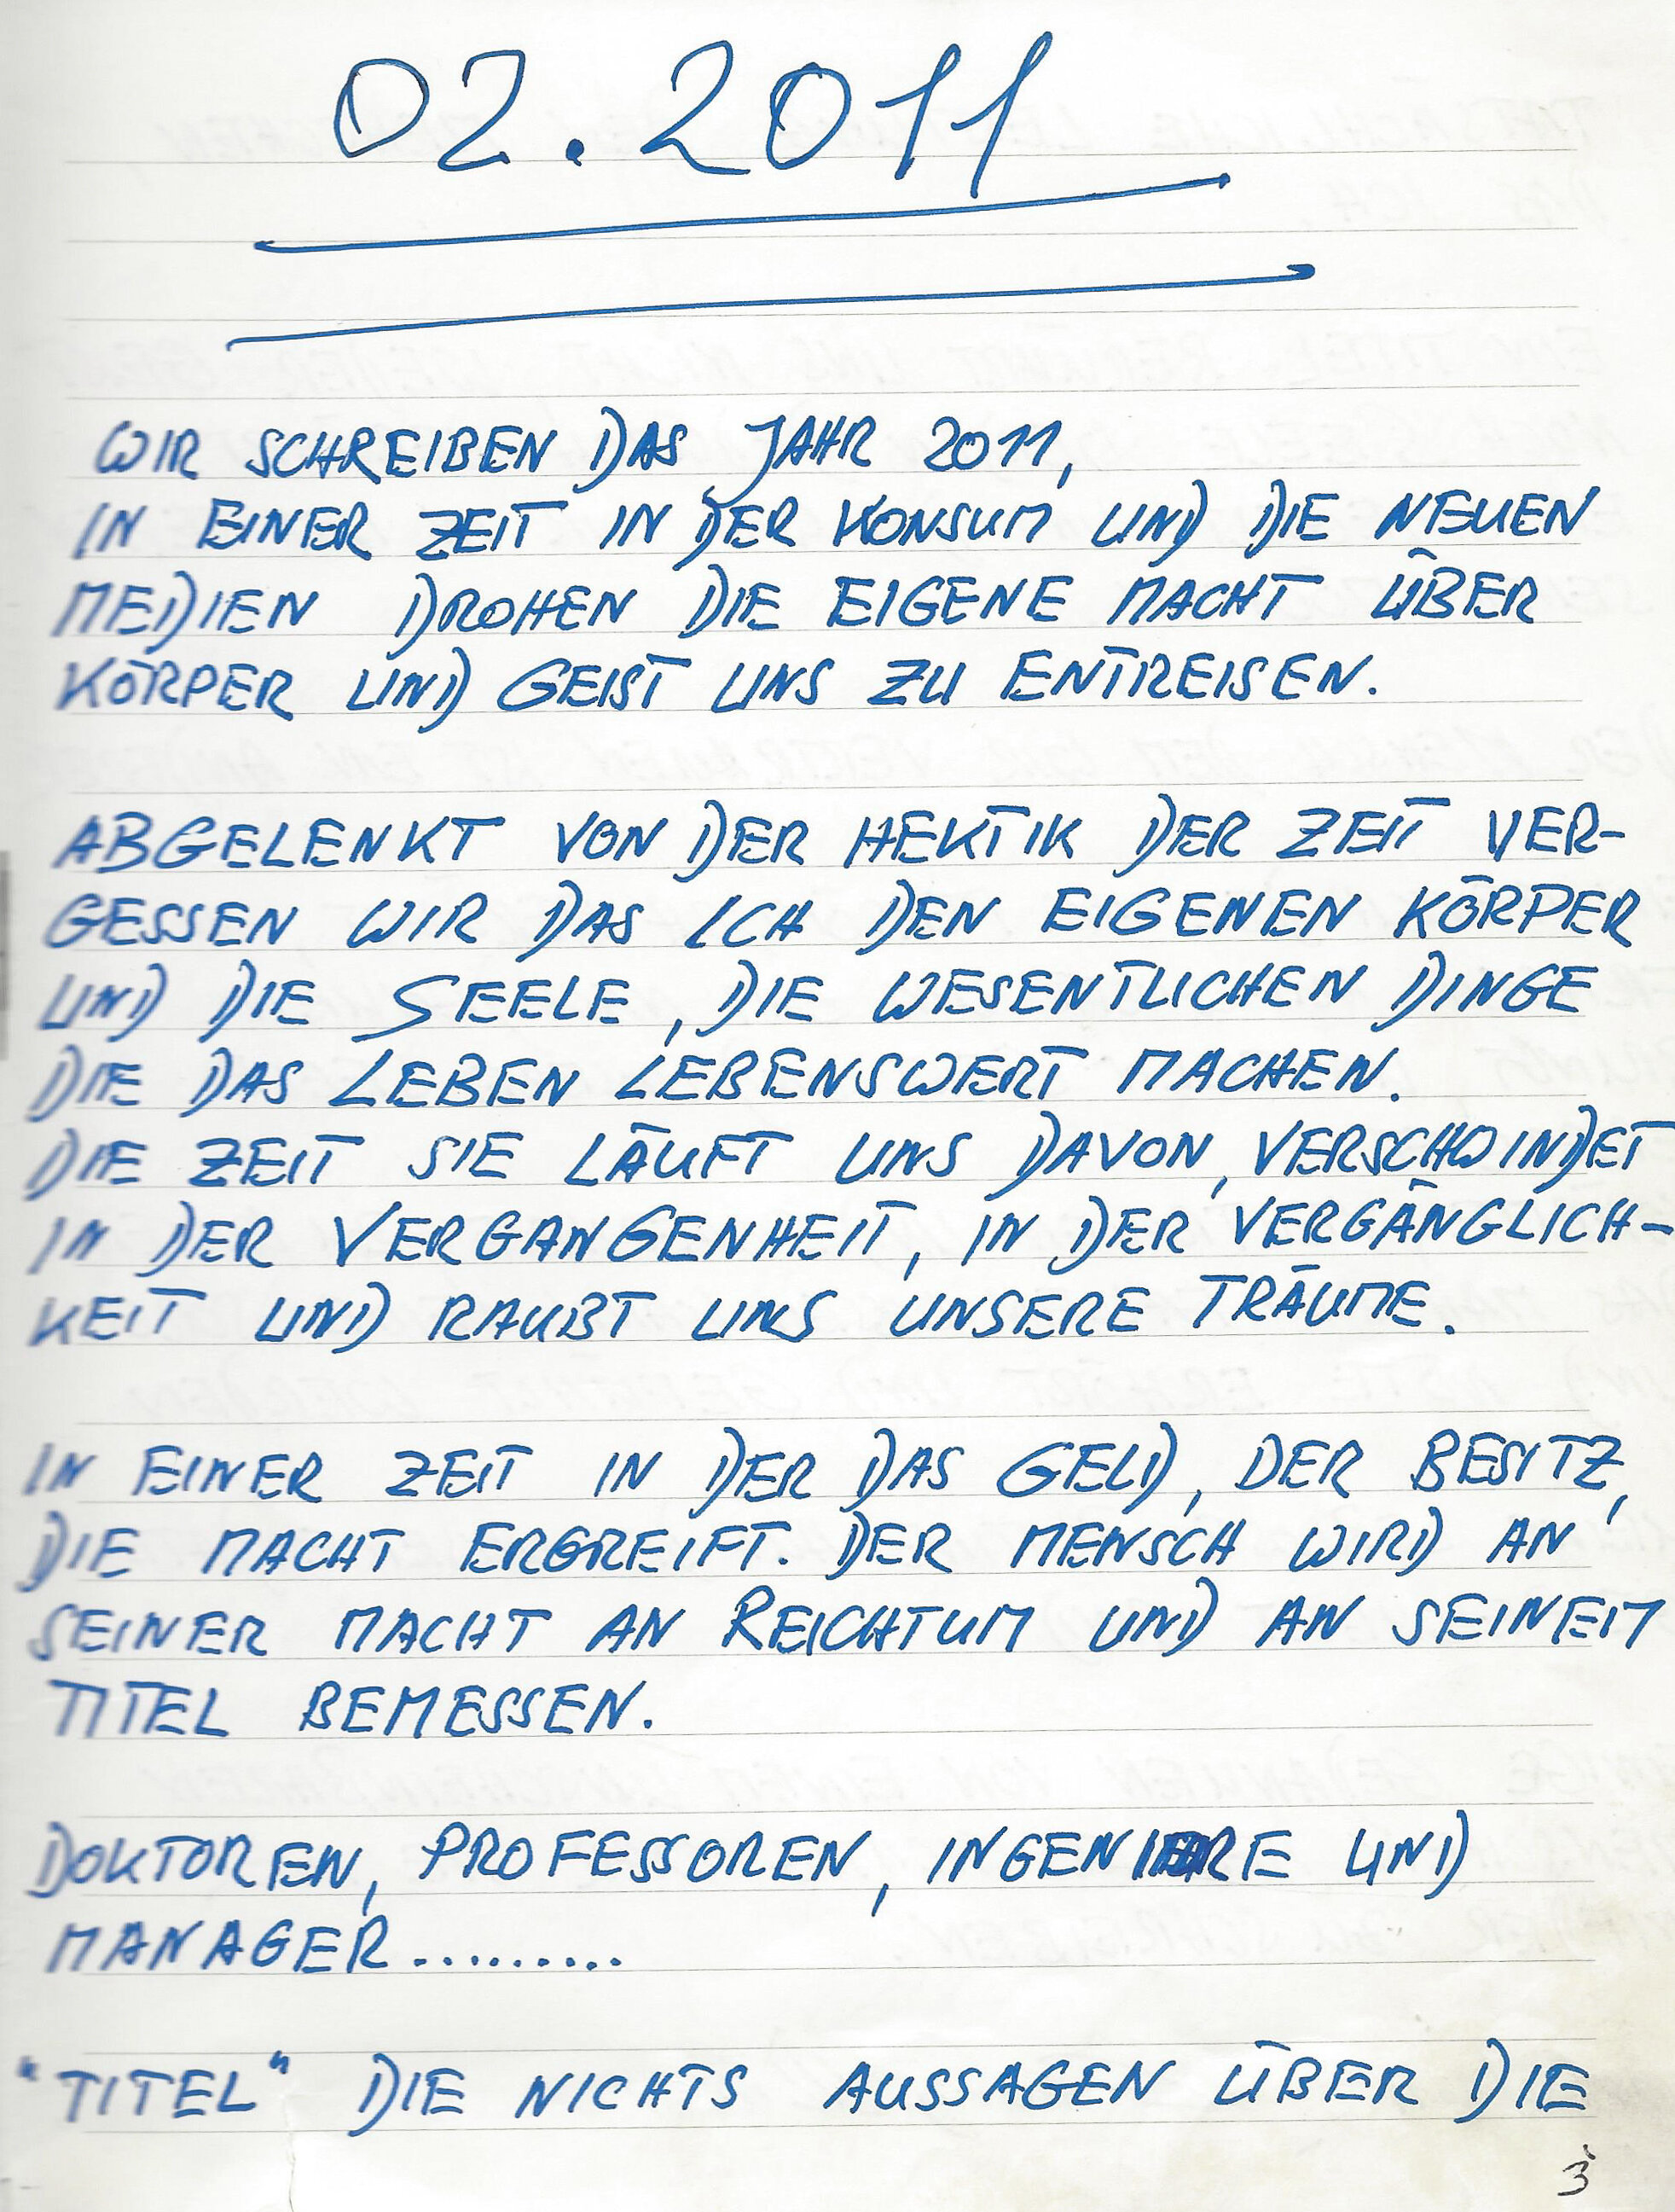 02.2011
WIR SCHREIBEN DAS JAHR 2011,
IN EINER ZEIT IN DER KONSUM UND DIE NEUEN
MEDIEN DROHEN DIE EIGENE MACHT ÜBER
KÖRPER UND GEIST UNS ZU ENTREISEN.
ABGELENKT VON DER HEKTIK DER ZEIT VER-
GESSEN WIR DAS ICH DEN EIGENEN KÖRPER
UND DIE SEELE, DIE WESENTLICHEN DINGE
DIE DAS LEBEN LEBENSWERT MACHEN.
DIE ZEIT SIE LÄUFT UNS DAVON, VERSCHWINDET
IN DER VERGANGENHEIT, IN DER VERGÄNGLICH-
KEIT UND RAUBT UNS UNSERE TRÄUME.
IN EINER ZEIT IN DER DAS GELD, DER BESITZ,
DIE MACHT ERGREIFT. DER MENSCH WIRD AN
SEINER MACHT AN REICHTUM UND AN SEINEM
TITEL BEMESSEN.
DOKTOREN, PROFESSOREN, UND
MANAGER.........
"TITEL" DIE NICHTS AUSSAGEN ÜBER DIE
3